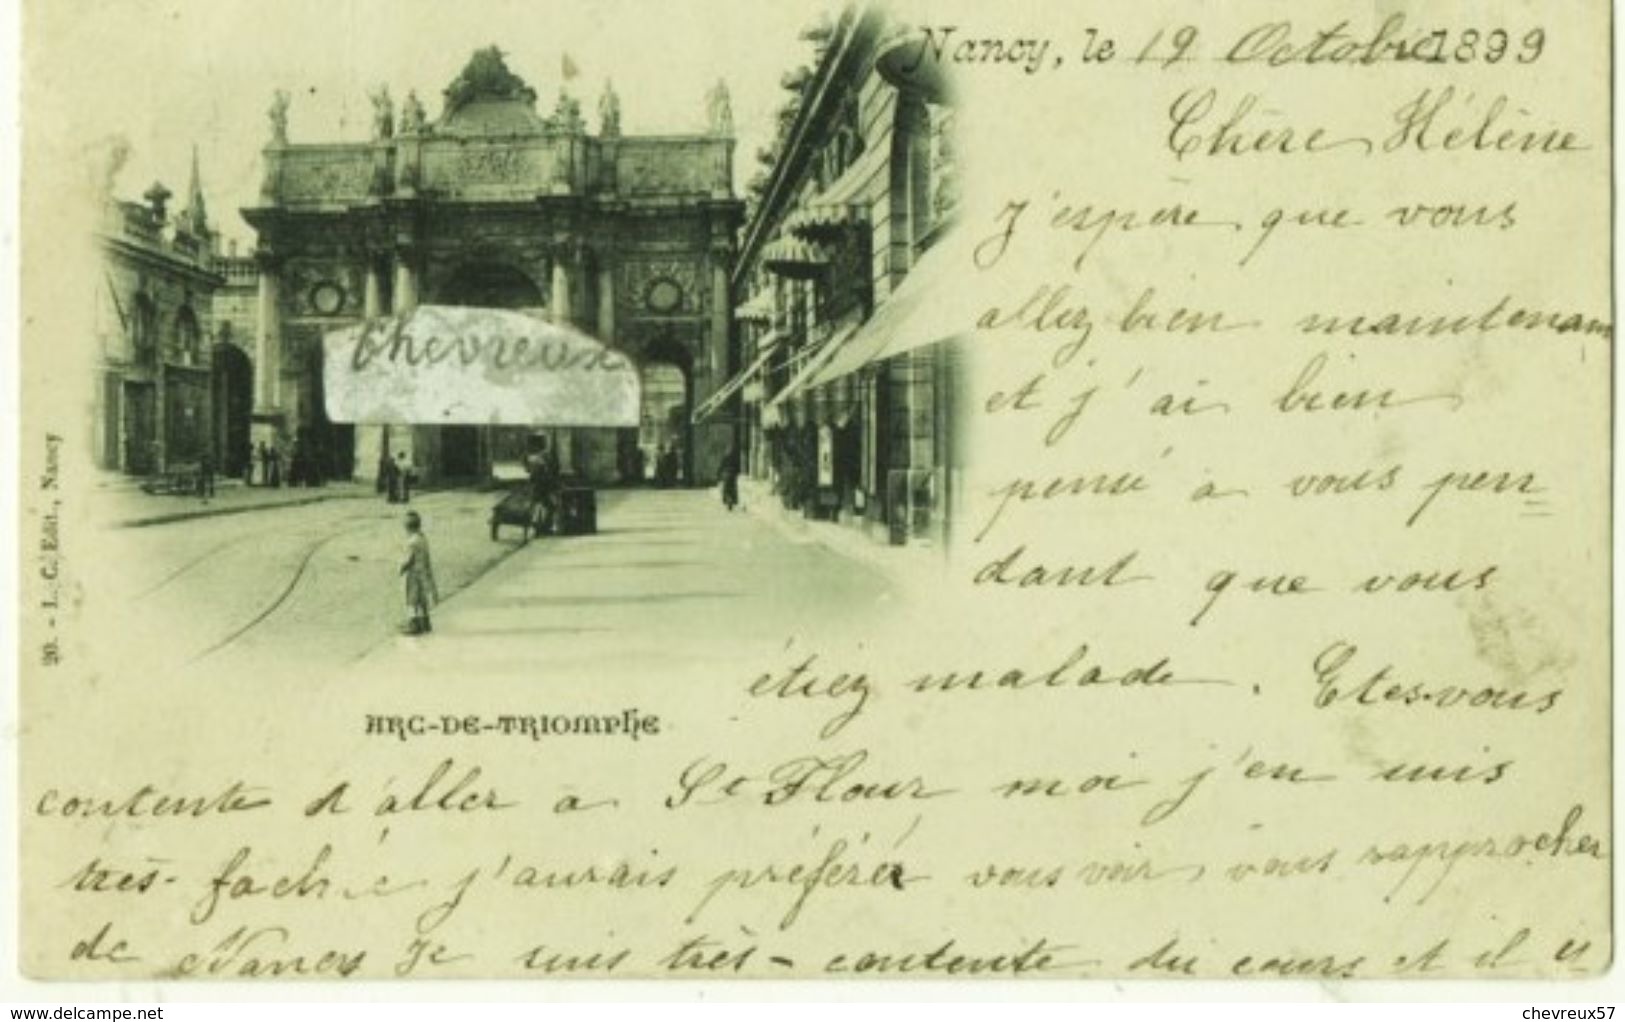 Nancy, le 19 Octobre 1899
Chère Hélène
J'espère que vous
allez bien maintenant
et j'ai bien
pensé a vous pen=
dant que vous
étiez malade. Etes-vous
contente d'aller a St Flour moi j'en suis
très-fachée j'aurais préférér vous voir vous rapprocher
de Nancy Je suis très-contente du cours et il es
Chevreux
ARC-DE-TRIOMPHE
20. - L. C. Edit., Nancy
www.delcampe.net
chevreux57